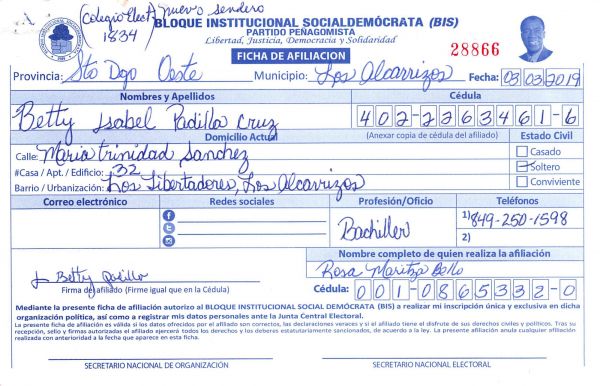 (Colegio Elect.) Nuevo Sendero
1834
BLOQUE INSTITUCIONAL SOCIALDEMÓCRATA (BIS)
PARTIDO PEÑAGOMISTA
Libertad, Justicia, Democracia y Solidaridad
FICHA DE AFILIACION
28866
Provincia: Sto Dgo Oeste Municipio: Los Alcarrizos Fecha: 03/03/2019
Nombres y Apellidos Cédula
Betty Isabel Padilla Cruz 402-2263461-6
Domicilio Actual (Anexar copia de cédula del afiliado) Estado Civil
Calle: Maria Trinidad Sanchez Casado
#Casa / Apt. / Edificio: 32 Soltero
Barrio / Urbanización: Los Libertadores, Los Alcarrizos Conviviente
Correo electrónico Redes sociales Profesión/Oficio Teléfonos
Bachiller 1) 849-250-1598
2)
Nombre completo de quien realiza la afiliación
Rosa Maritza Bello
Betty Padilla
Firma del afiliado (Firme igual que en la Cédula) Cédula: 001-0865332-0
Mediante la presente ficha de afiliación autorizo al BLOQUE INSTITUCIONAL SOCIAL DEMÓCRATA (BIS) a realizar mi inscripción única y exclusiva en dicha
organización política, así como a registrar mis datos personales ante la Junta Central Electoral.
La presente ficha de afiliación es válida si los datos ofrecidos por el afiliado son correctos, las declaraciones veraces y si el afiliado tiene el disfrute de sus derechos civiles y políticos. Tras su
recepción, sello y firmas autorizadas el afiliado ejercerá todos los derechos y los deberes estatutariamente sancionados, de acuerdo a la ley. La presente afiliación anula cualquier afiliación
realizada con anterioridad a la fecha que aparece en esta ficha.
SECRETARIO NACIONAL DE ORGANIZACIÓN SECRETARIO NACIONAL ELECTORAL